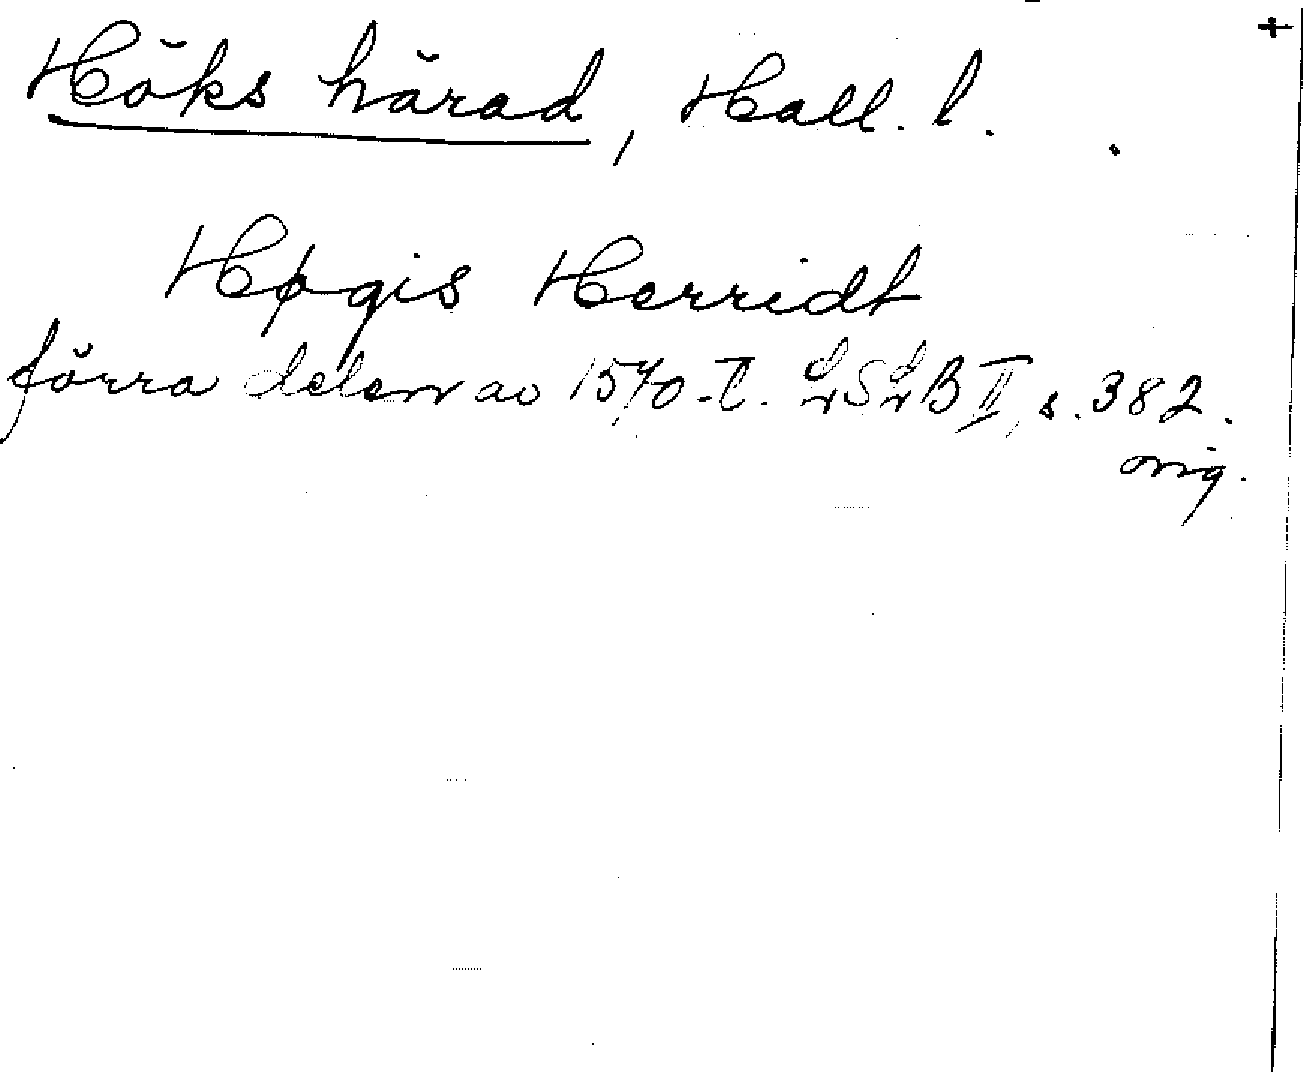 Höks härad, Hall. l.
Høgis Herridt
förra delen av 1570-t. LSLB II, s. 382.
orig.